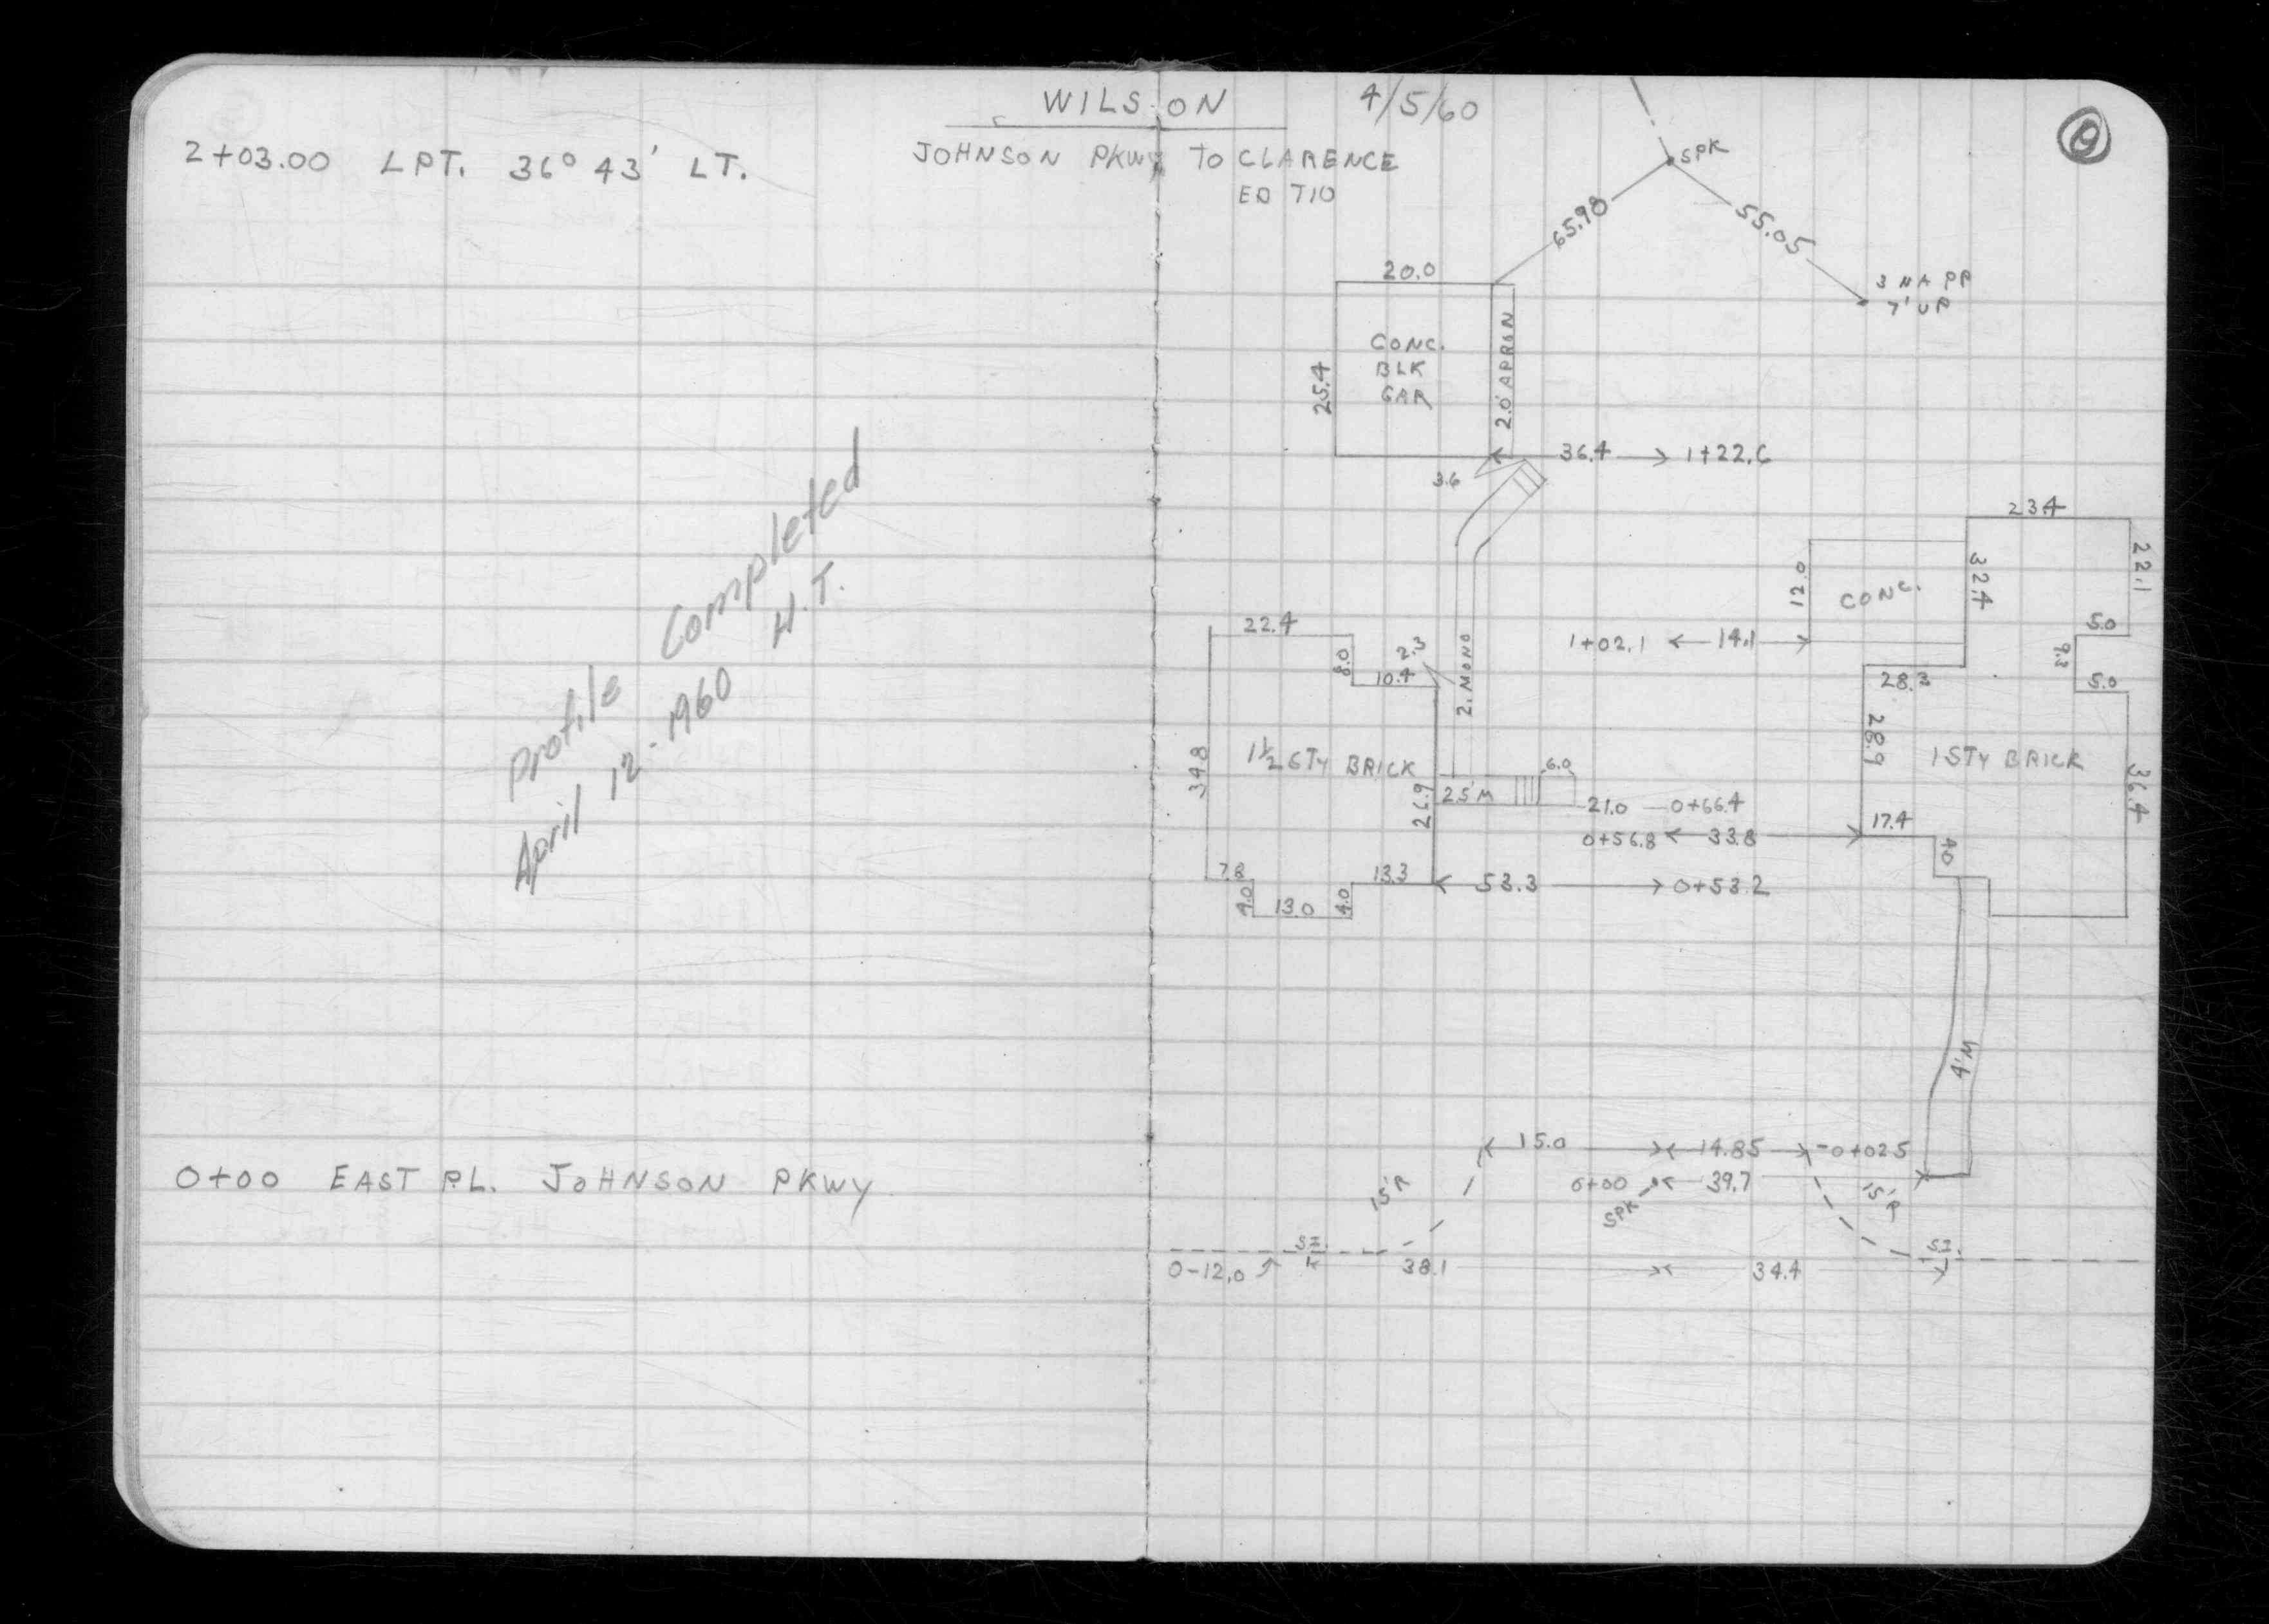 WILSON 4/5/60
2+03.00 LPT. 36° 43' LT.
JOHNSON PKWY TO CLARENCE
Profile Completed
April 12-1960 H.T.
0+00 EAST P.L. JOHNSON PKWY
SPK
65.98
55.05
3 NA PP
7' UP
20.0
CONC.
BLK
GAR
25.4
2.0' APRON
36.4 1+22.6
3.6
23.4
22.1
32.4
12.0
CONC.
5.0
9.3
5.0
1+02.1 14.1
28.3
28.9
1 STY BRICK
36.4
22.4
8.0
2.3
10.4
2.1 MONO
34.8
1½ STY BRICK
26.9
2.5' M
6.0
21.0 0+66.4
0+56.8 33.8
17.4
4.0
7.8
4.0
13.0
4.0
13.3
53.3 0+53.2
4' M
15.0 14.85 0+02.5
0+00 39.7
SPK
15' R
15' R
S.I.
S.I.
0-12.0 38.1 34.4